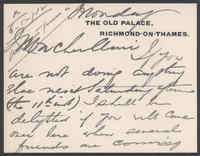 Monday
THE OLD PALACE,
RICHMOND-ON-THAMES.
If you
are not doing anything
else next Saturday afternoon
(the 11th) I shall be
delighted if you will come
over here when several
friends are coming